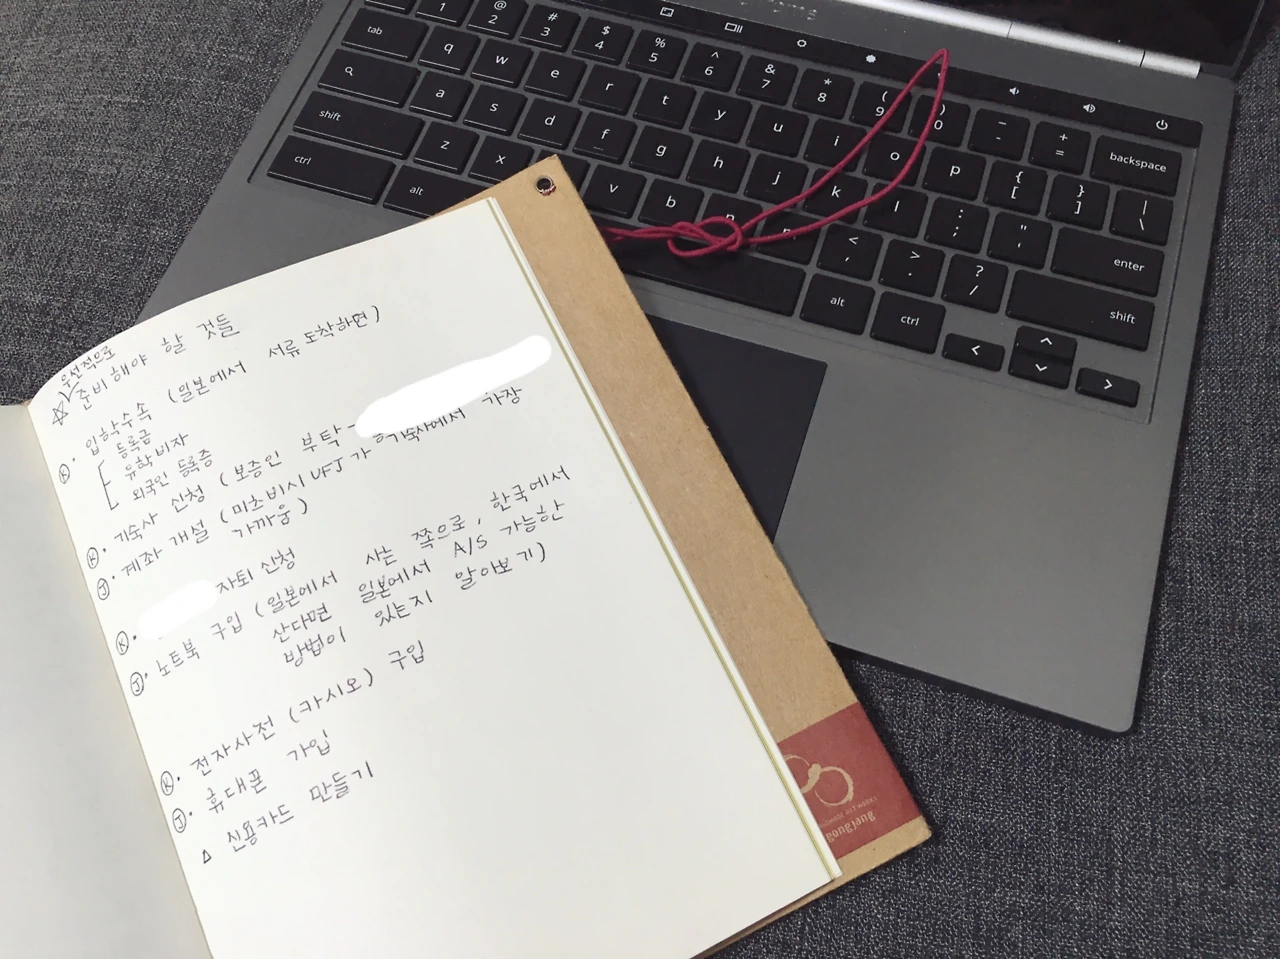 우선적으로
☆ 준비해야 할 것들
Ⓚ · 입학수속 (일본에서 서류 도착하면)
등록금
유학비자
외국인 등록증
Ⓚ · 기숙사 신청 (보증인 부탁 -
Ⓙ · 계좌 개설 (미츠비시 UFJ가 기숙사에서 가장
가까움)
Ⓚ · 자퇴 신청
Ⓙ · 노트북 구입 (일본에서 사는 쪽으로, 한국에서
산다면 일본에서 A/S 가능한
방법이 있는지 알아보기)
Ⓚ · 전자사전 (카시오) 구입
Ⓙ · 휴대폰 가입
△ 신용카드 만들기
1 @ 2 # 3 $ 4 % 5 ^ 6 & 7 * 8 ( 9 ) 0 _ - + = backspace
tab q w e r t y u i o p { [ } ] | \
a s d f g h j k l : ; " ' enter
shift z x v b n < , > . ? / shift
ctrl alt alt ctrl